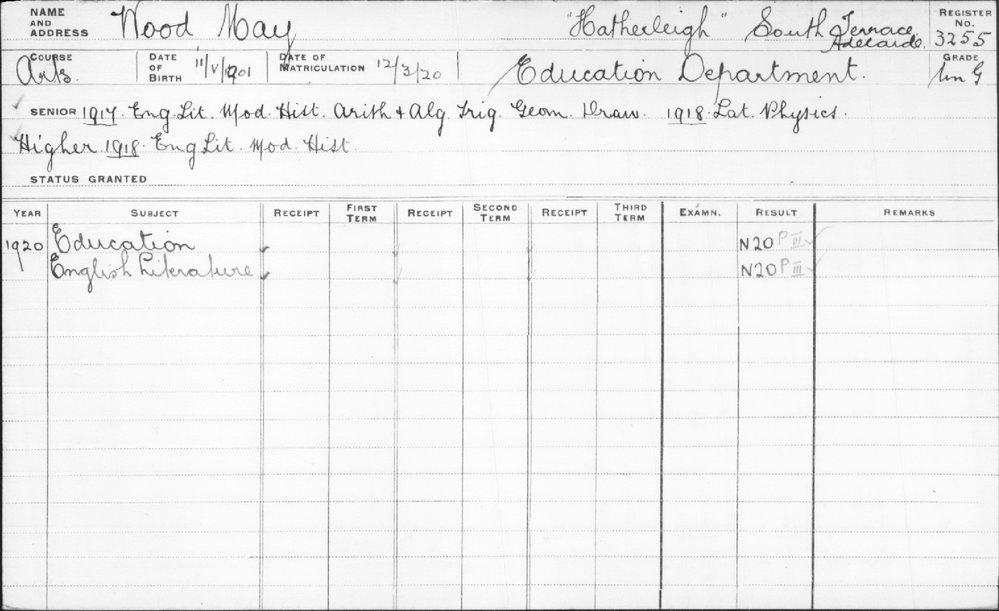 NAME AND ADDRESS Wood May "Hatherleigh" South Terrace Adelaide. REGISTER No. 3255
COURSE Arts. DATE OF BIRTH 11/V/1901 DATE OF MATRICULATION 12/3/20 Education Department. GRADE Un G
SENIOR 1917. Eng. Lit. Mod. Hist. Arith + Alg. Trig. Geom. Draw. 1918. Lat. Physics.
Higher 1918. Eng Lit. Mod. Hist.
STATUS GRANTED
YEAR SUBJECT RECEIPT FIRST TERM RECEIPT SECOND TERM RECEIPT THIRD TERM EXAMN. RESULT REMARKS
1920 Education ✓ N20 P III ✓
English Literature ✓ N20 P III ✓